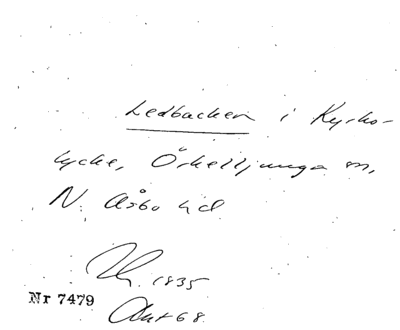 Ledbacken i Kyrko-
lycke, Örkelljunga sn,
N. Åsbo hd
1835
Nr 7479
Akt 68